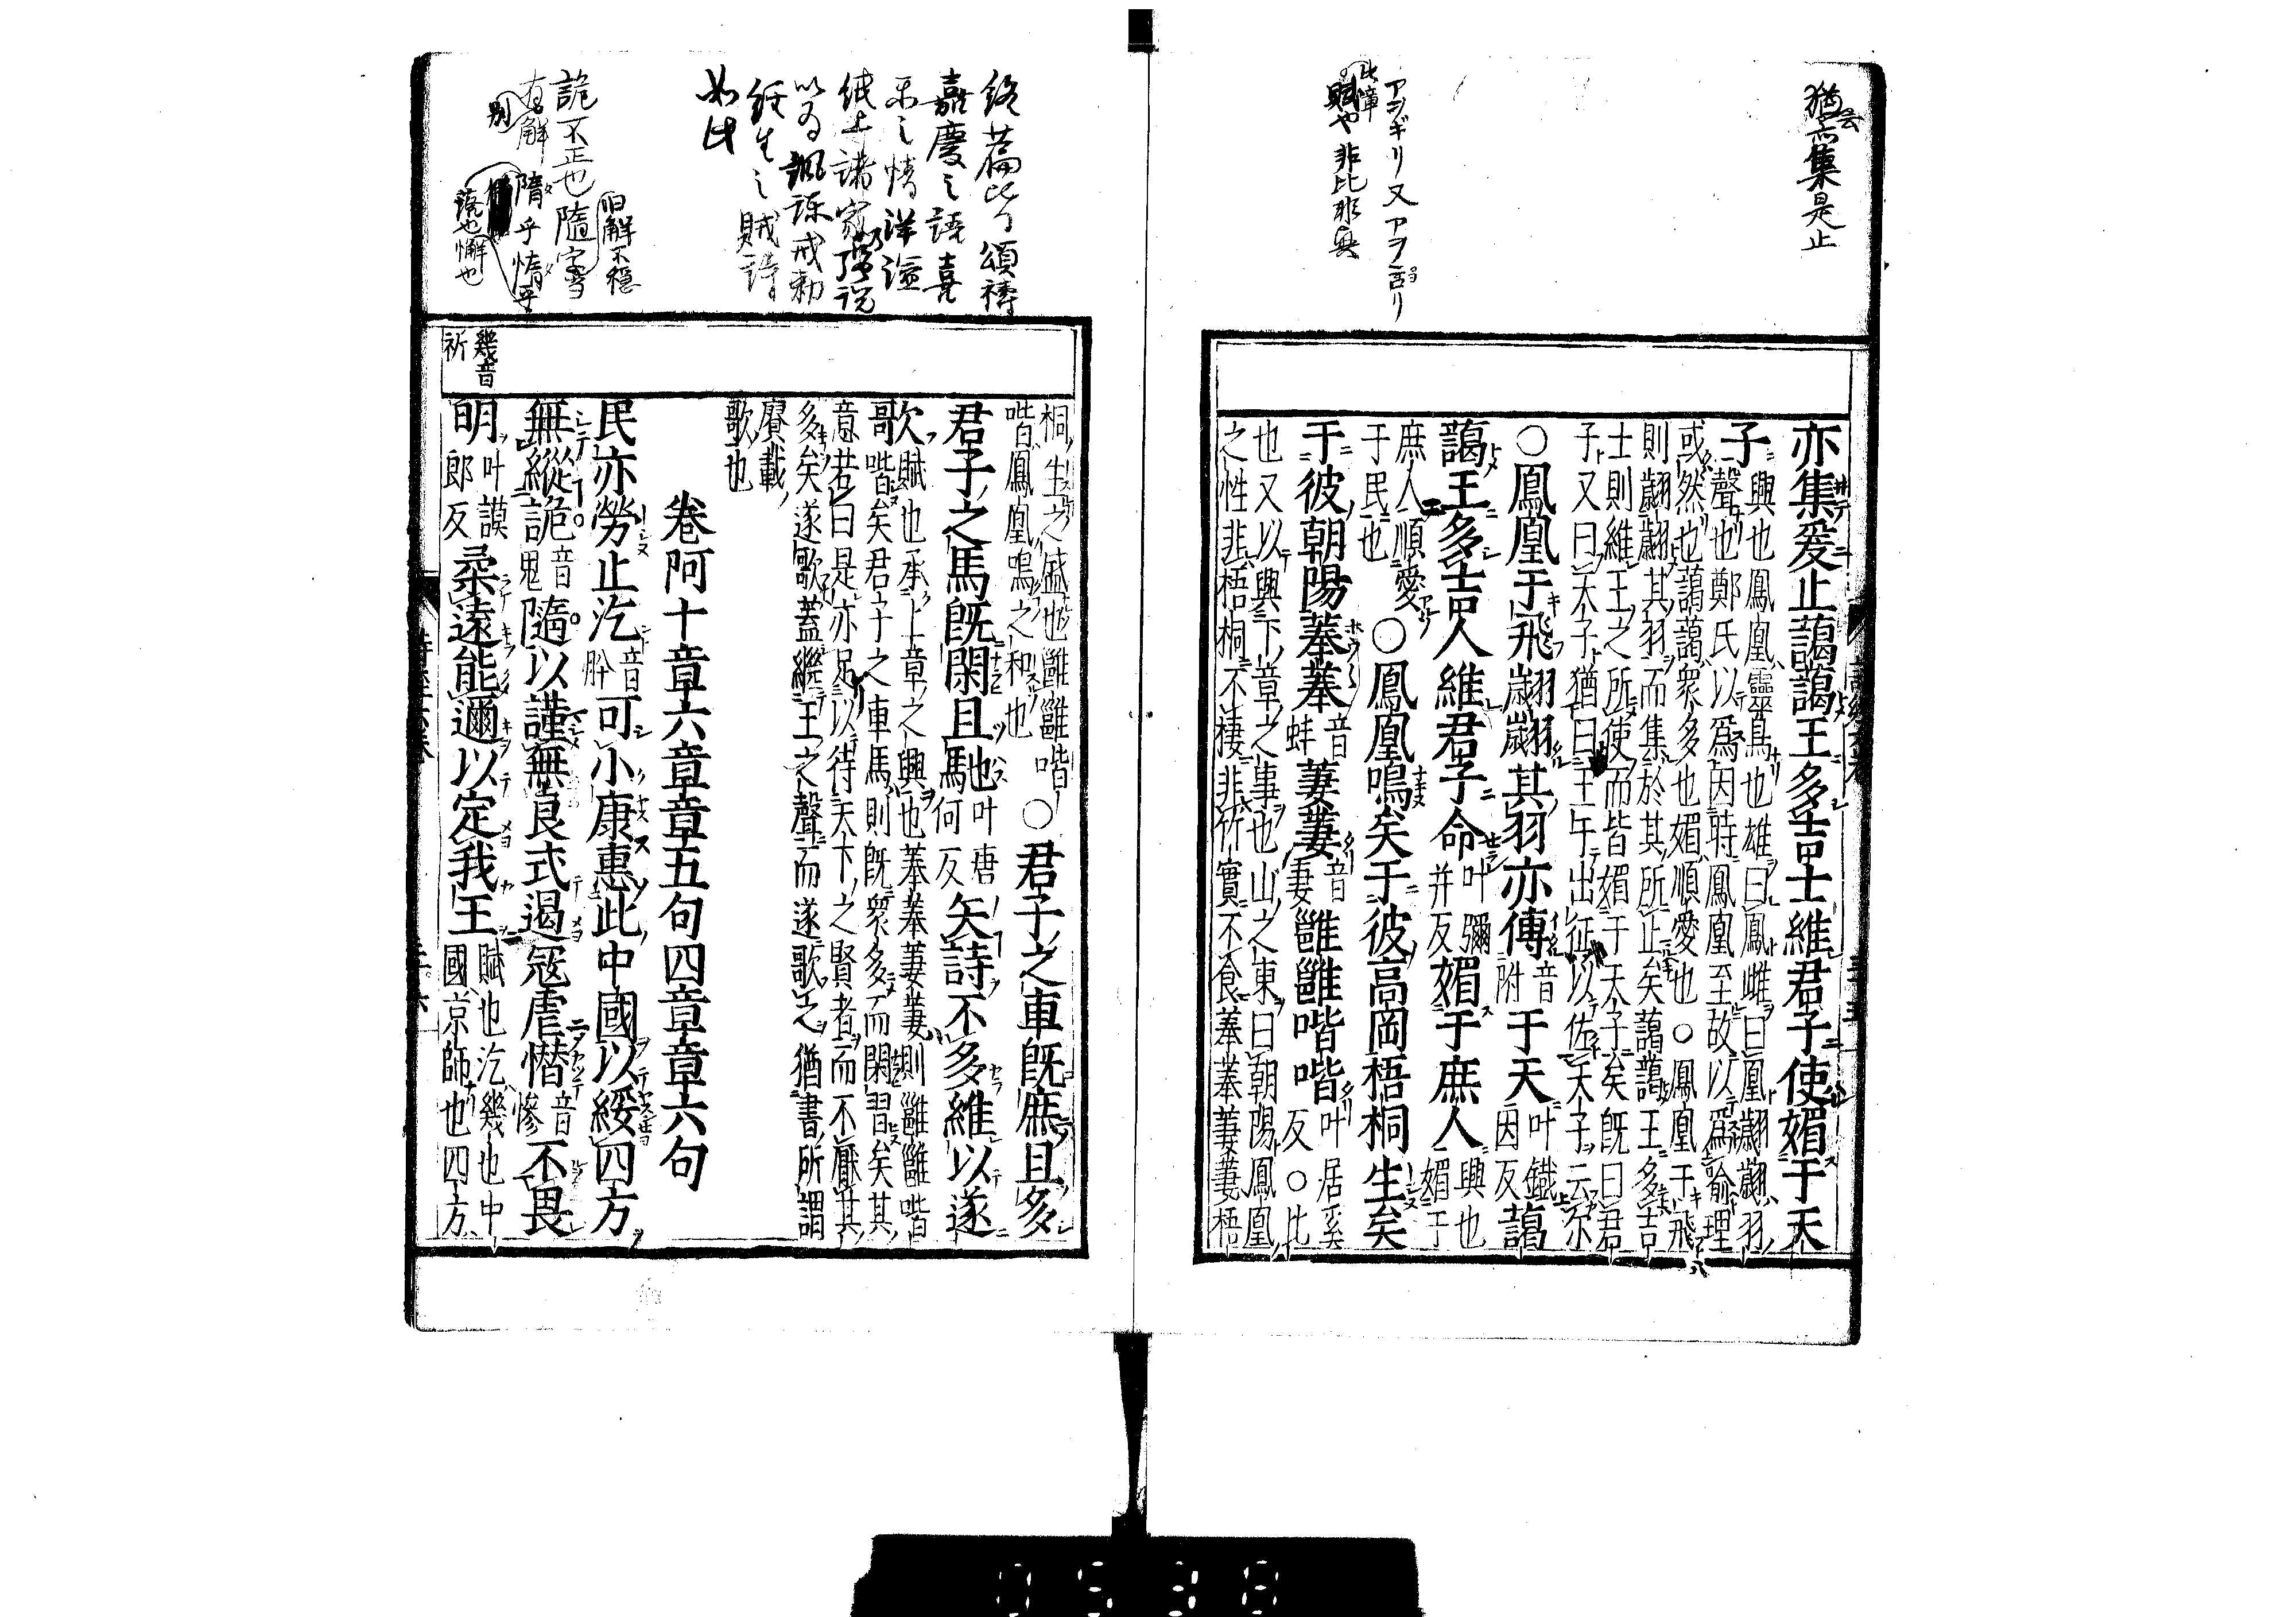 猶云集是止
アシギリ又アヲギリ
此章
賦也非比非興
亦集爰止藹藹王多吉士維君子使媚于天
子興也鳳凰靈鳥也雄曰鳳雌曰凰翽翽羽
聲也鄭氏以爲因時鳳凰至故以爲喻理
或然也藹藹衆多也媚順愛也○鳳凰于飛
則翽翽其羽而集於其所止矣藹藹王多吉
士則維王之所使而皆媚于天子矣既曰君
子又曰天子猶曰王于出征以佐天子云尔
○鳳凰于飛翽翽其羽亦傅音附于天叶鐵因反藹
藹王多吉人維君子命叶彌并反媚于庶人興也媚于
庶人順愛于民也○鳳凰鳴矣于彼高岡梧桐生矣
于彼朝陽菶菶音蚌萋萋音妻雝雝喈喈叶居奚反○比
也又以興下章之事也山之東曰朝陽鳳凰
之性非梧桐不棲非竹實不食菶菶萋萋梧
桐生之盛也雝雝喈
喈鳳凰鳴之和也○君子之車既庶且多
君子之馬既閑且馳叶唐何反矢詩不多維以遂
歌賦也承上章之興也菶菶萋萋則雝雝喈
喈矣君子之車馬則既衆多而閑習矣其
意若曰是亦足以待天下之賢者而不厭其
多矣遂歌蓋繼王之聲而遂歌之猶書所謂
賡載
歌也
卷阿十章六章章五句四章章六句
民亦勞止汔音肸可小康惠此中國以綏四方
無縱詭音鬼隨以謹無良式遏寇虐憯音慘不畏
明叶謨郎反柔遠能邇以定我王賦也汔幾也中國京師也四方
幾音
祈
終篇皆頌禱
嘉慶之語喜
樂之情洋溢
紙上諸家
以爲諷諫戒勅
經生之賊詩
如此
詭不正也隨字
旧解不穩
有別解
隋乎惰乎
懈也